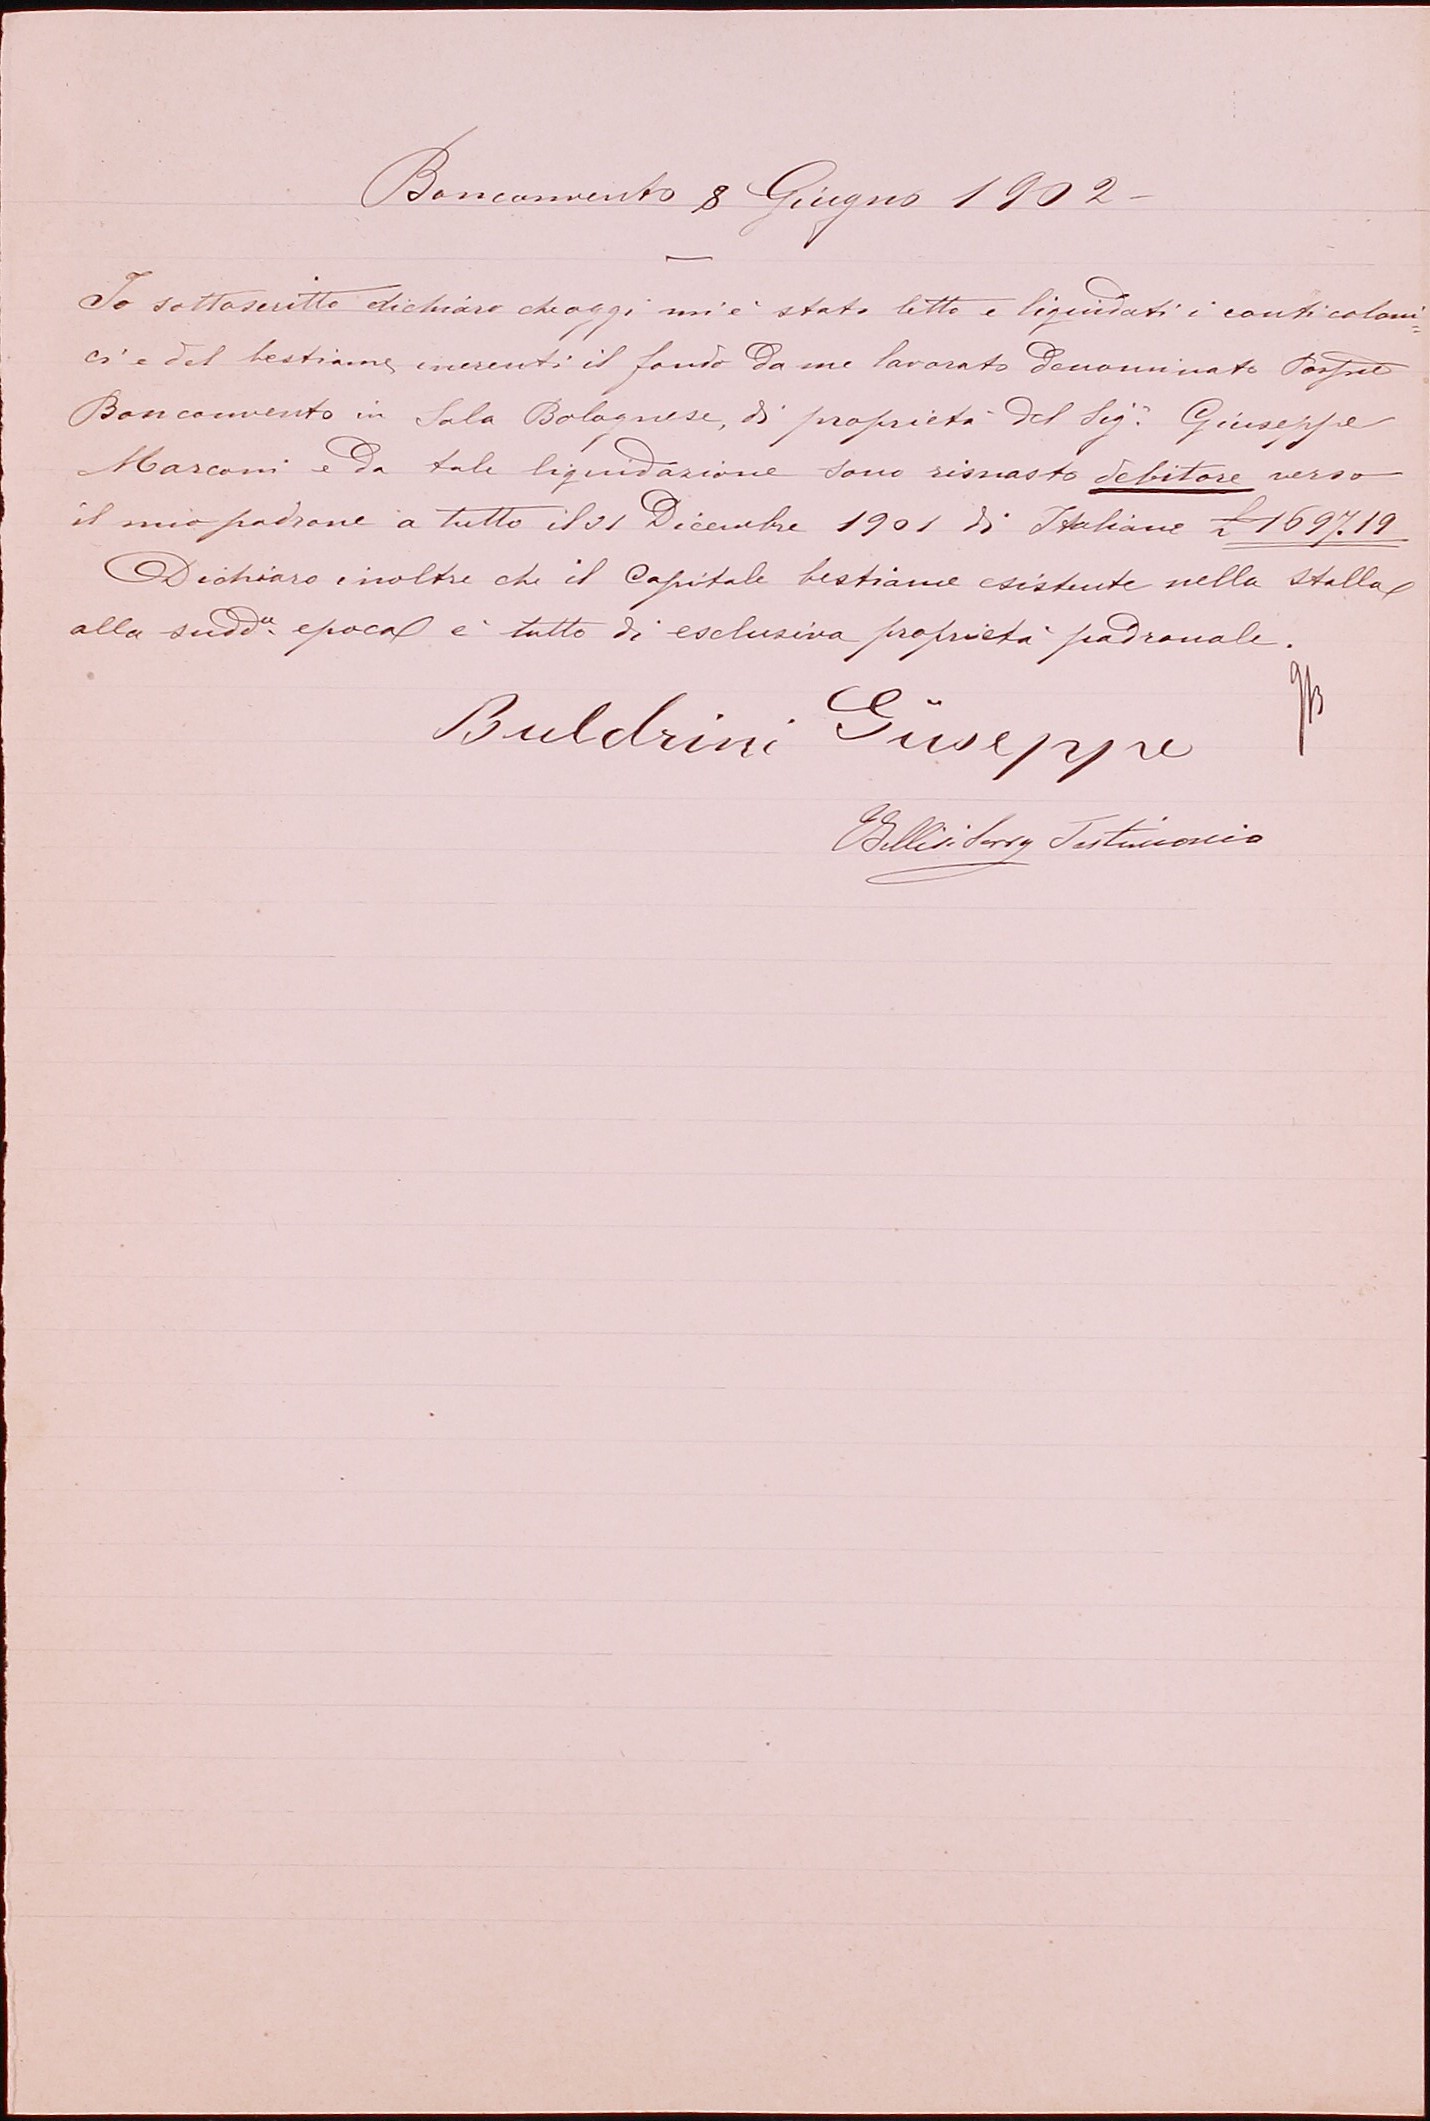 Bonconvento 8 Giugno 1902 -
Io sottoscritto dichiaro che oggi mi è stato letto e liquidati i conti coloni=
ci e del bestiame inerenti il fondo da me lavorato denominato
Bonconvento in Sala Bolognese, di proprietà del Sig.r Giuseppe
Marconi e da tale liquidazione sono rimasto debitore verso
il mio padrone a tutto il 31 Dicembre 1901 di Italiane £ 1697.19
Dichiaro inoltre che il Capitale bestiame esistente nella stalla
alla sudd.a epoca è tutto di esclusiva proprietà padronale.
Buldrini Giuseppe
Testimonio